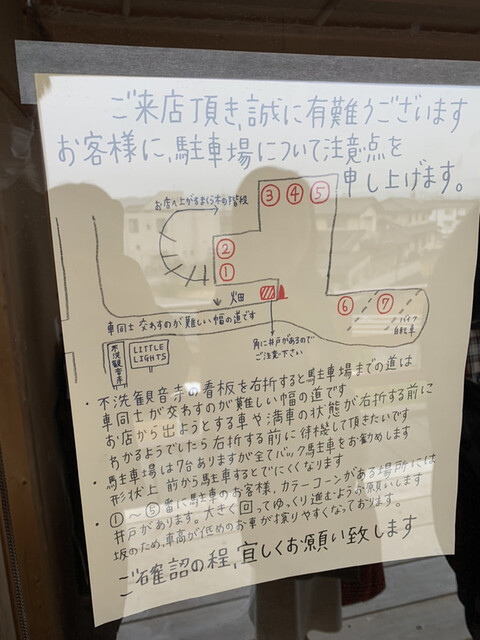 ご来店頂き、誠に有難うございます
お客様に、駐車場について注意点を
申し上げます。
お店へ上がるまくら木の階段
③ ④ ⑤
②
①
畑
⑥ ⑦
バイク
自転車
車同士交わすのが難しい幅の道です
角に井戸があるので
ご注意下さい
不洗観音寺
LITTLE
LIGHTS
・不洗観音寺の看板を右折すると駐車場までの道は
車同士が交わすのが難しい幅の道です
お店から出ようとする車や満車の状態が右折する前に
わかるようでしたら右折する前に待機して頂きたいです
・駐車場は7台ありますが全てバック駐車をお勧めします
形状上 前から駐車するとでにくくなります
・①〜⑤番に駐車のお客様、カラーコーンがある場所には
井戸があります。大きく回ってゆっくり進むようお願いします
坂のため、車高が低めのお車が擦りやすくなっております。
ご確認の程、宜しくお願い致します